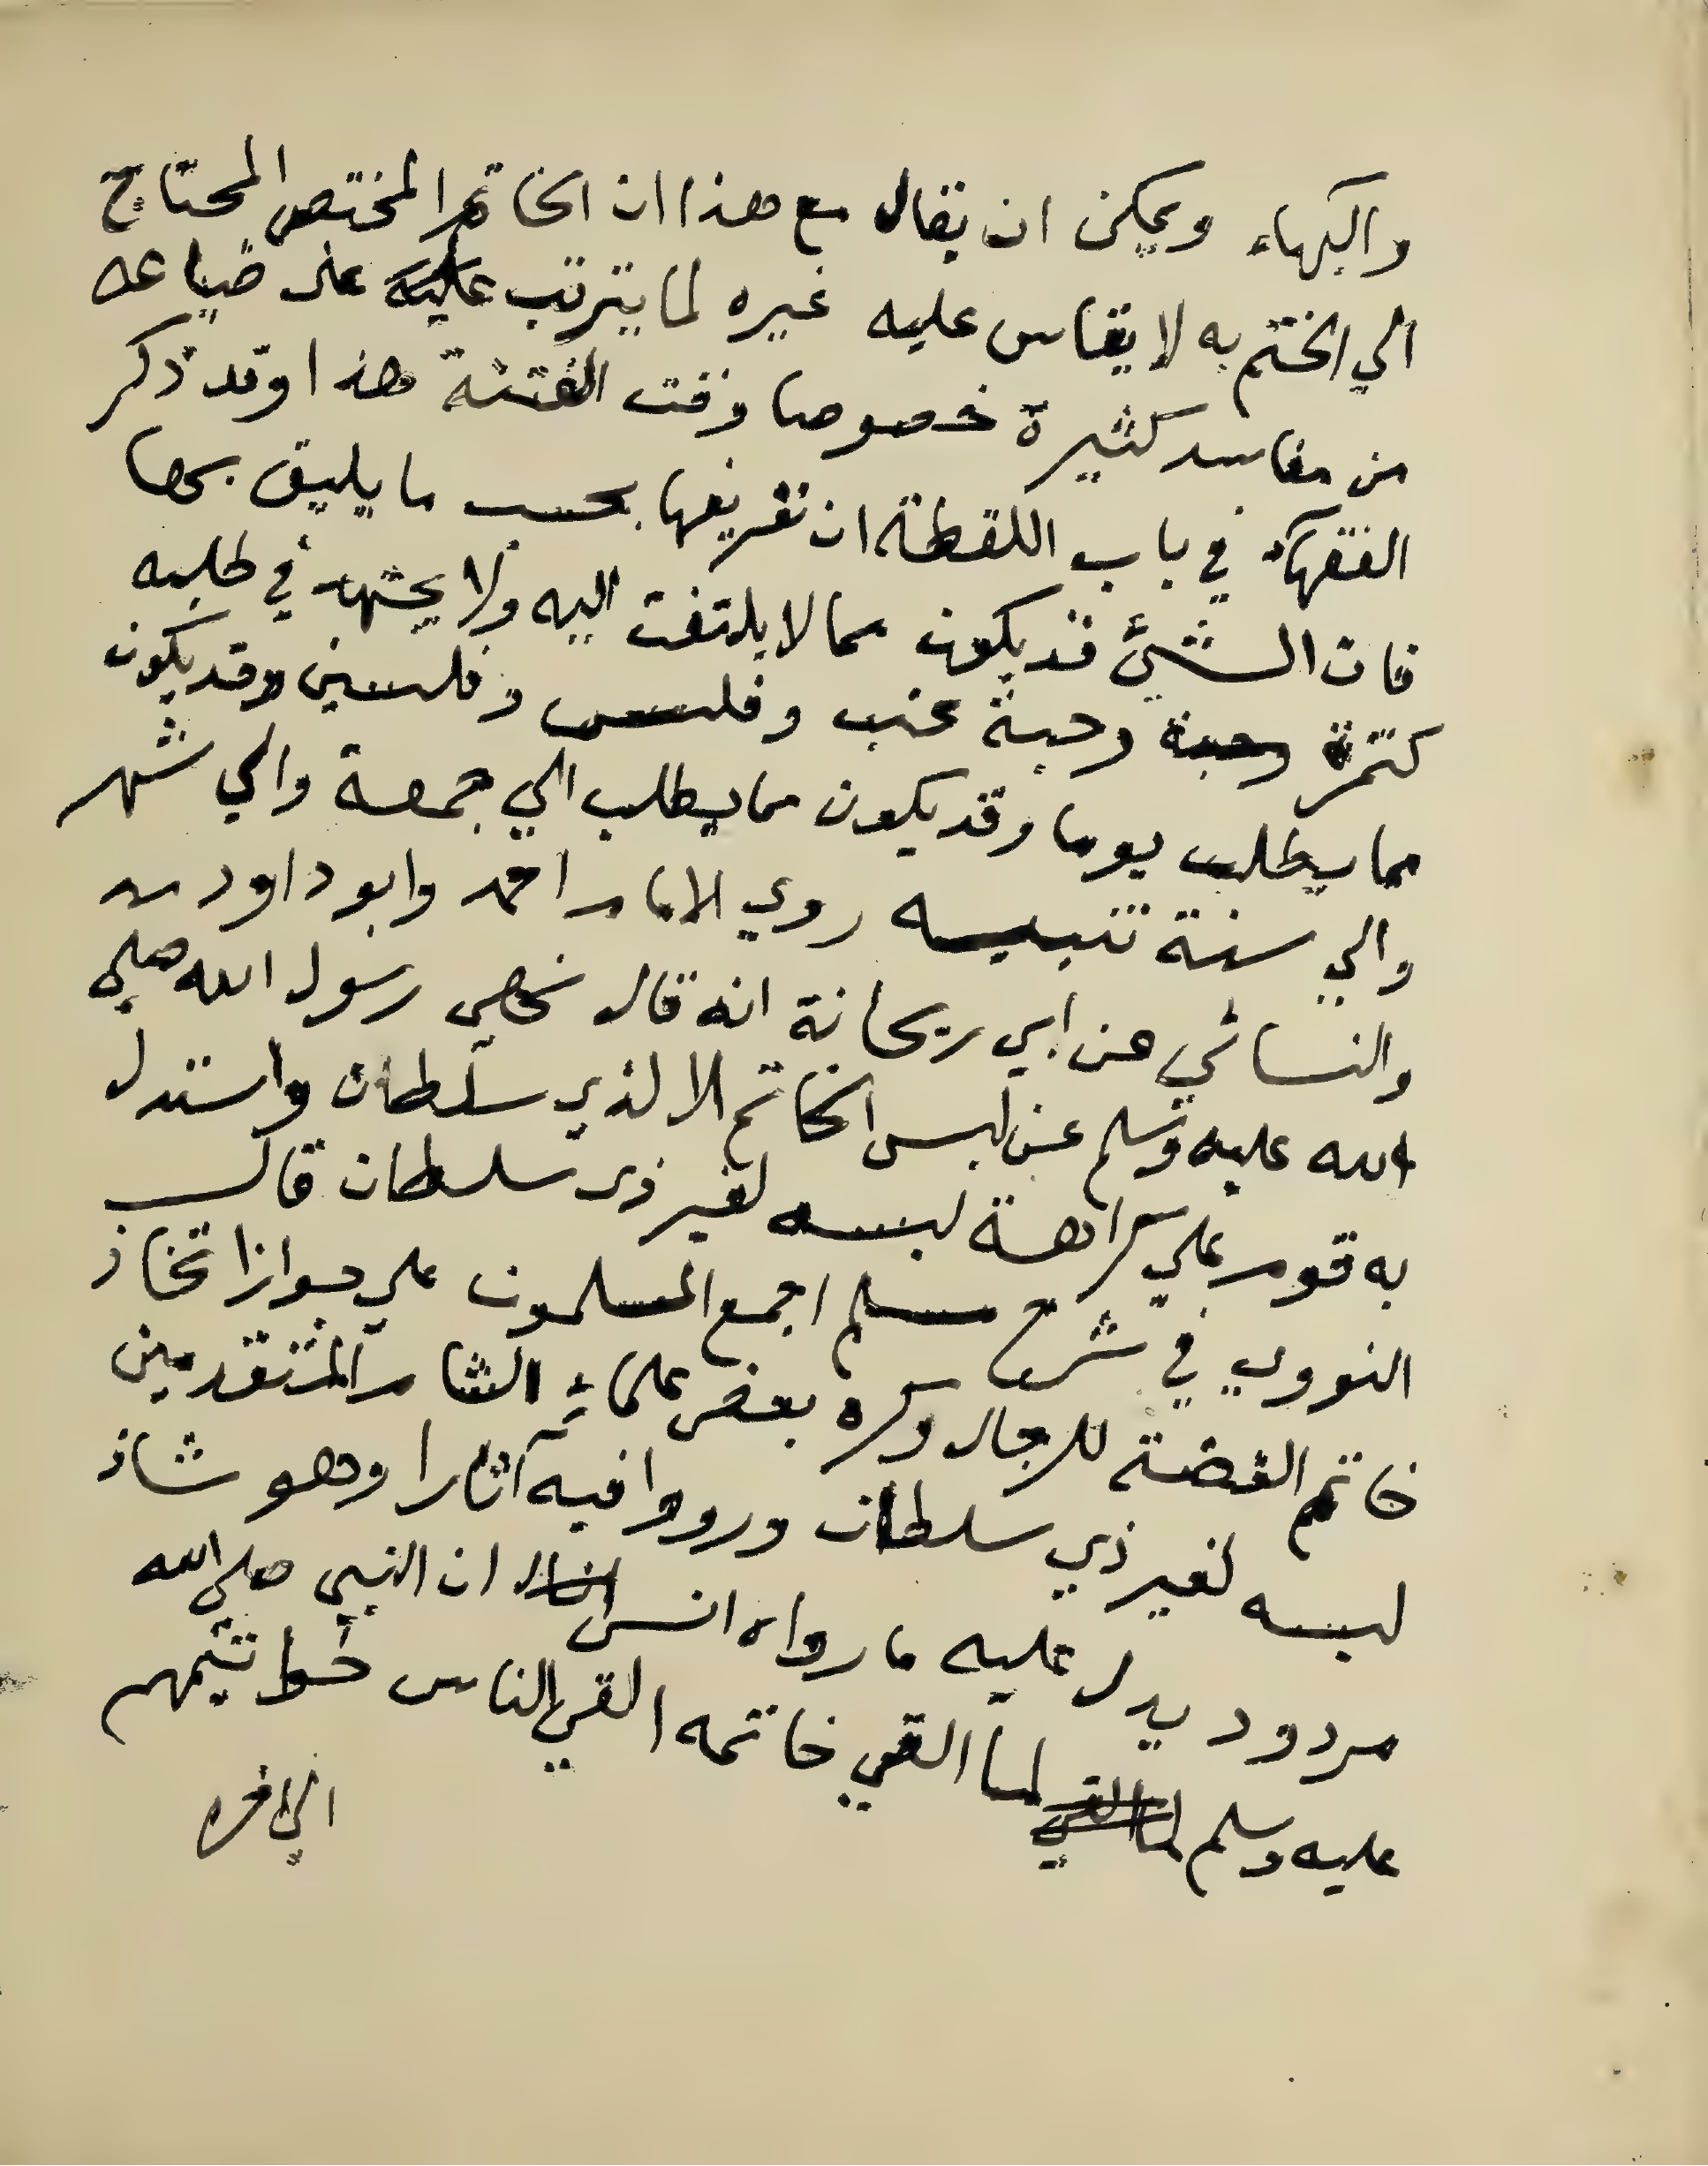 والبهاء ويمكن ان يقال مع هذا ان الخاتم المختص المحتاج
الي الختم به لا يقاس عليه غيره لما يترتب عليه عند ضياعه
من مفاسد كثيرة خصوصا وقت الفتنة هذا وقد ذكر
الفقهاء في باب اللقطة ان تعريفها بحسب ما يليق بها
فان الشيء قد يكون مما لا يلتفت اليه ولا يجتهد في طلبه
كتمرة وحبة وحبة عنب وفلس وفلسين وقد يكون
مما يطلب يوما وقد يكون مما يطلب الي جمعة والي شهر
والي سنة تنبيه روي الامام احمد وابو داود
والنسائي عن ابي ريحانة انه قال نهي رسول الله صلي
الله عليه وسلم عن لبس الخاتم الا لذي سلطان واستدل
به قوم علي كراهة لبسه لغير ذي سلطان قال
النووي في شرح مسلم اجمع المسلمون علي جواز اتخاذ
خاتم الفضة للرجال وكره بعض علماء الشام المتقدمين
لبسه لغير ذي سلطان ورووا فيه آثارا وهو شاذ
مردود يدل عليه ما رواه انس ان النبي صلي الله
عليه وسلم لما القي لما القي خاتمه القي الناس خواتيمهم
الي اخره